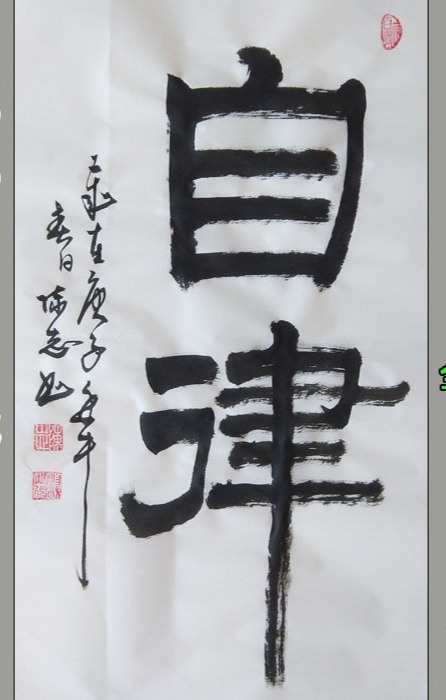 自律
歲在庚子年
春日陈志